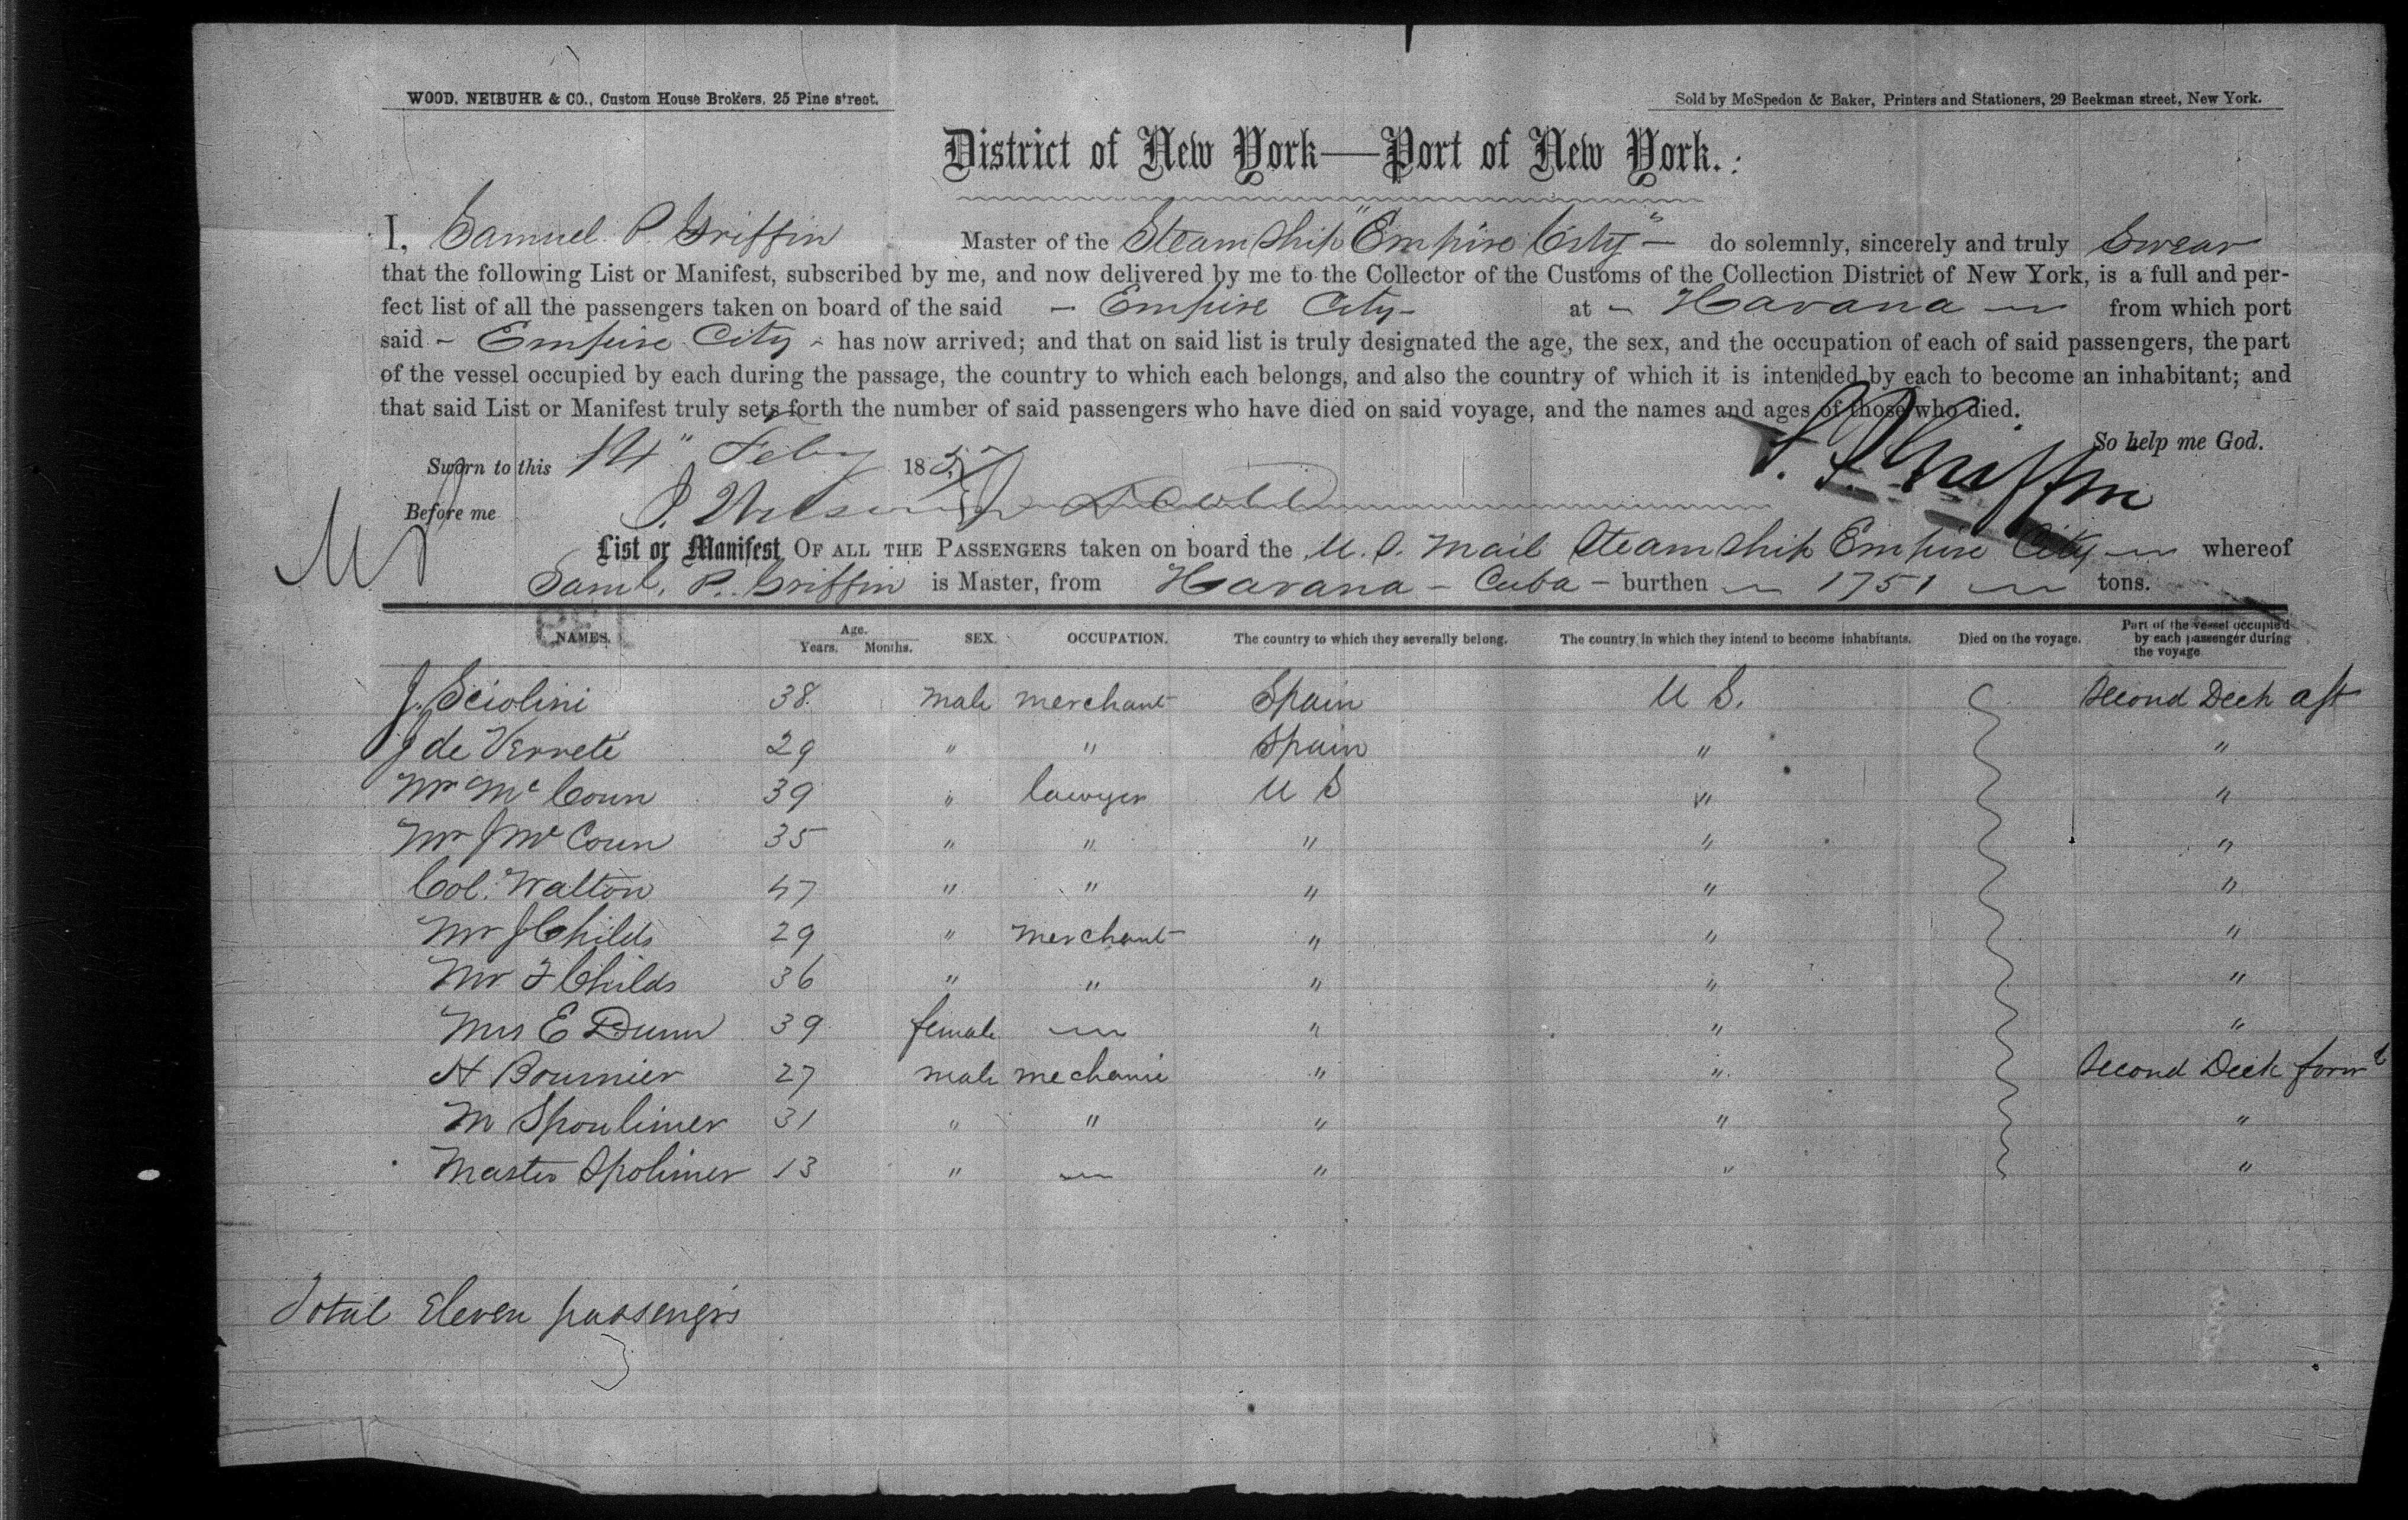 WOOD, NEIBUHR & CO., Custom House Brokers, 25 Pine street.
Sold by McSpedon & Baker, Printers and Stationers, 29 Beekman street, New York.
District of New York—Port of New York.
I, Samuel P. Griffin Master of the Steam Ship "Empire City" — do solemnly, sincerely and truly Swear
that the following List or Manifest, subscribed by me, and now delivered by me to the Collector of the Customs of the Collection District of New York, is a full and per-
fect list of all the passengers taken on board of the said — Empire City — at — Havana — from which port
said — Empire City — has now arrived; and that on said list is truly designated the age, the sex, and the occupation of each of said passengers, the part
of the vessel occupied by each during the passage, the country to which each belongs, and also the country of which it is intended by each to become an inhabitant; and
that said List or Manifest truly sets forth the number of said passengers who have died on said voyage, and the names and ages of those who died.
So help me God.
Sworn to this 14" Feby 1857 S. P. Griffin
Before me
List or Manifest OF ALL THE PASSENGERS taken on board the U. S. Mail Steam Ship Empire City — whereof
Saml. P. Griffin is Master, from Havana — Cuba — burthen — 1751 — tons.
NAMES. Age. Years. Months. SEX. OCCUPATION. The country to which they severally belong. The country in which they intend to become inhabitants. Died on the voyage. Part of the vessel occupied by each passenger during the voyage
J. Sciolini 38 male merchant Spain U S. Second Deck aft
J de Verrete 29 " " Spain " "
Mr Mc Coun 39 " lawyer U S " "
Mr J Mc Coun 35 " " " " "
Col. Walton 47 " " " " "
Mr J Childs 29 " merchant " " "
Mr F Childs 36 " " " " "
Mrs E Dunn 39 female — " " "
H Bournier 27 male mechanic " " Second Deck forwd
M Spoulimer 31 " " " " "
Master Spolimer 13 " — " " "
Total Eleven passengers